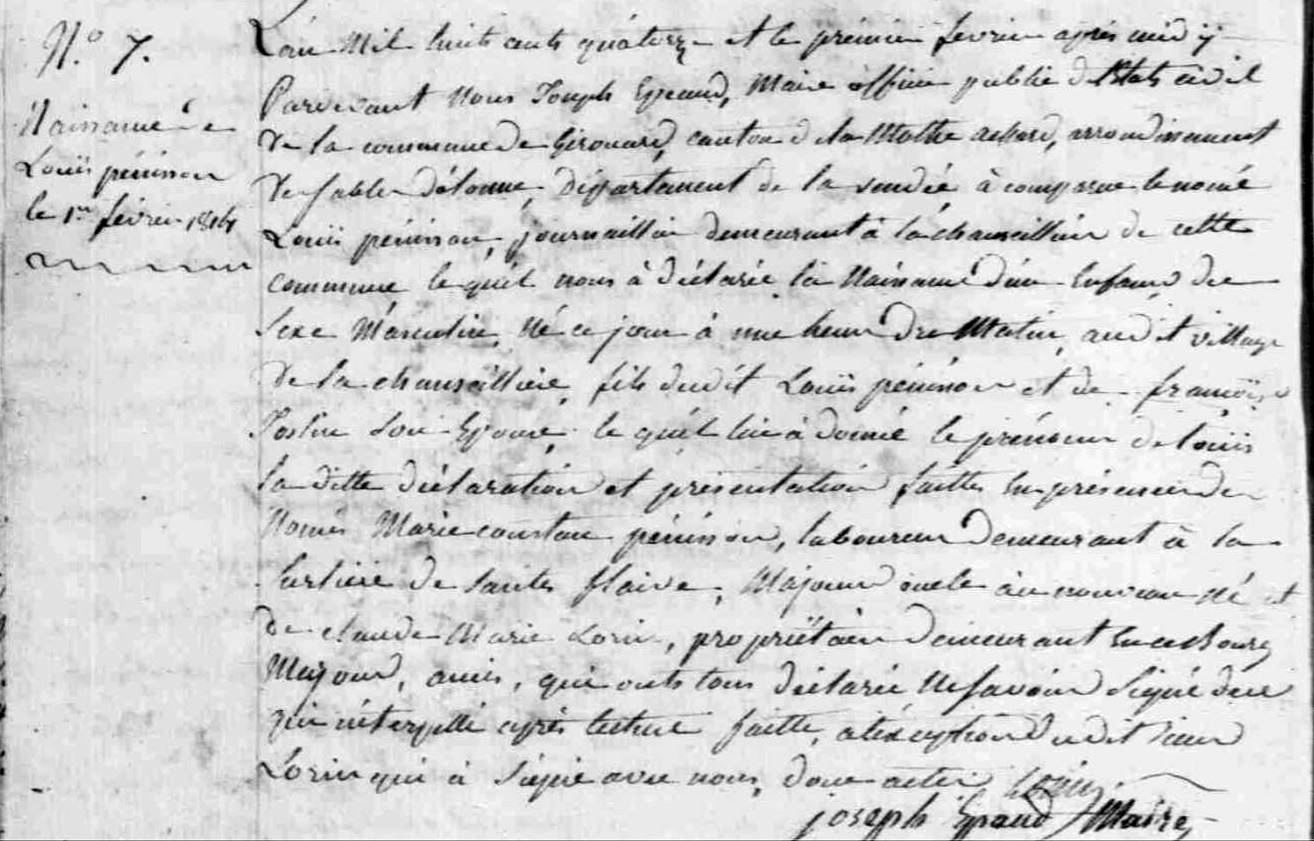 N.o 7.
Naissance de
Louis pénisson
le 1er février 1814
L'an Mil huit cents quatorze et le prémier fevrier après midy
Pardevant Nous Joseph Epeaud, Maire officier public d l'Etats civil
De la commune de Girouard, canton d la Mothe achard, arrondissement
De sables d'olonne, Département de la vendée à comparue le nomé
Louis pénisson, journaillier demeurant à la chauseillière de cette
commune, le quél nous à déclarée la Naissance d'un Enfant, de
Sexe Masculin, Né ce jour à une heure Du Matin, audit village
De la chauseillière, fils dudit Louis pénisson et de françoise
son Epouse, le quél lui à donné le prénom de Louis
la ditte déclaration et présentation faittes en présence de
Només Marie constan pénisson, laboureur Demeurant à la
de Sainte flaive, Majeur oncle au nouveau Né et
De claude Marie Lorin, propriétaire Demeurant en ce Bourg
Majeur, amis, qui onts tous déclarée Ne savoir Signé de ce
qui intérpellé après lecture faitte, a l'éxception dudit sieur
Lorin qui à Signé avec nous, donc acte, Lorin
joseph Epaud Maire